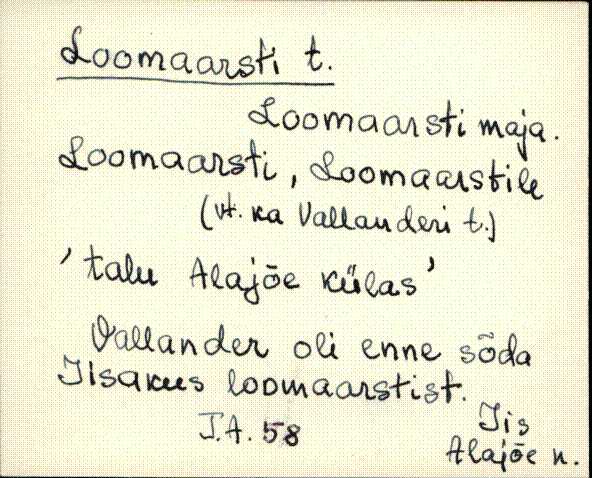 Loomaarsti t.
Loomaarsti maja.
Loomaarsti, Loomaarstile
(vt. ka Vallanderi t.)
'talu Alajõe külas'
Vallander oli enne sõda
Iisakus loomaarstist.
J.A. 58
Iis
Alajõe n.